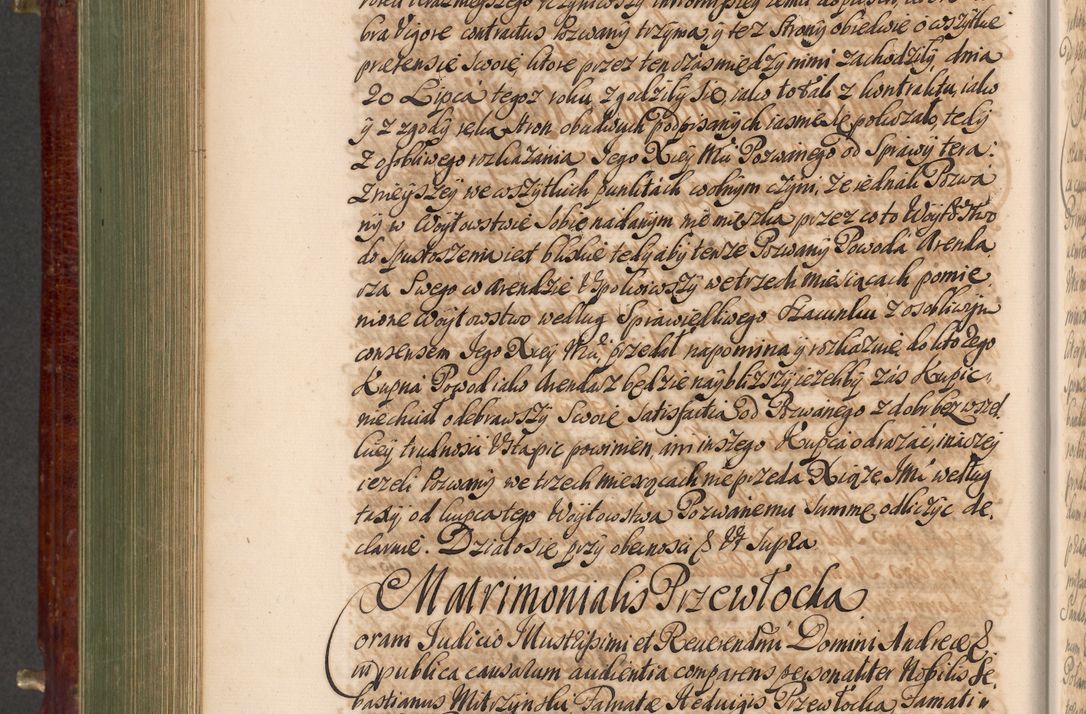 bra Vigore contractus Pozwany trzyma, y też Strony obiedwie o wszytkie
prætensie Swoie, ktore przez ten czas miedzy nimi zachodziły, dnia
20 Lipca tegoz roku, zgodziły się, iako to tak z kontraktu, iako
y z zgody ręką Stron obudwuch podpisanych iasnie się pokazało, tedy
z osobliwego rozkazania Jego Xcey Mći Pozwanego od Sprawy tera:
znieyszey we wszytkich punktach wolnym czyni, że iednak Pozwa
ny w Woytowstwie Sobie nadanym nie mieszka przez co to Woytostwo
do spustoszenia iest bliskie tedy aby tenże Pozwany Powoda Arenda
rza Swego w arendzie Uspokoiwszy we trzech Miesiącach pomie
nione Woytowstwo według Sprawiedliwego Szacunku z osobliwym
consensem Jego Xcey Mći, przedał napomina y rozkazuie, do ktorego
Kupna Powod iako Arendarz będzie naybliższy ieżeliby zas Kupic
niechciał odebrawszy Swoię Satisfactią od Pozwanego z dobr bez wszel
kiey trudnosci Ustąpic powinien, ani inszego Kupca odrażać, inaczej
ieżeli Pozwany we trzech miesyącach nie przeda Xiążę JMć według
taxy od kupca tego Woytowstwa Pozwanemu Summę odliczyc de.
claruie. Działo się przy obecnosci &c Ut Supra
Matrimonialis Przewłocka
Coram Judicio Illustrissimi et Reuerendmi Domini Andreæ &c
in publica causarum audientia comparens personaliter Nobilis Se
bastianus Mitrzynski Famatæ Heduigis Przewłocka Famati